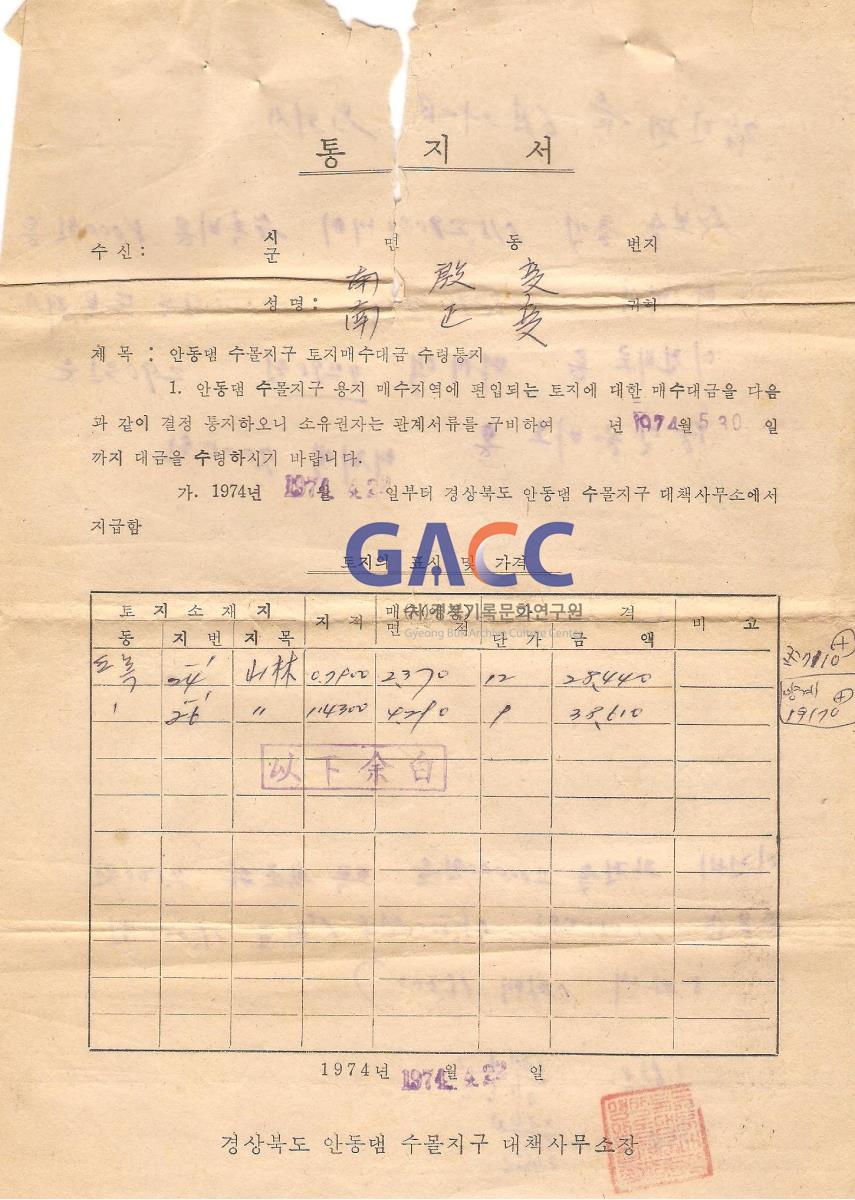 통 지 서
수 신 : 시 군 면 동 번지
南 殷 燮
성 명 : 귀하
南 正 燮
제 목 : 안동댐 수몰지구 토지매수대금 수령통지
1. 안동댐 수몰지구 용지 매수지역에 편입되는 토지에 대한 매수대금을 다음
과 같이 결정 통지하오니 소유권자는 관계서류를 구비하여 년 1974월 5.30 일
까지 대금을 수령하시기 바랍니다.
가. 1974년 1974월 4.22 일부터 경상북도 안동댐 수몰지구 대책사무소에서
지급함
GACC
토지의 표시 및 가격
(사)경북기록문화연구원
Gyeong Buk Archive Culture Center
토 지 소 재 지 지 적 매수(예정) 면 적 가 격 비 고
동 지 번 지 목 단 가 금 액
도목 산24-1 山林 0.7900 2,370 12 28,440
〃 산26-1 〃 1.4300 4,290 9 38,610
19170
以下余白
1974년 1974월 4.22 일
경상북도 안동댐 수몰지구 대책사무소장